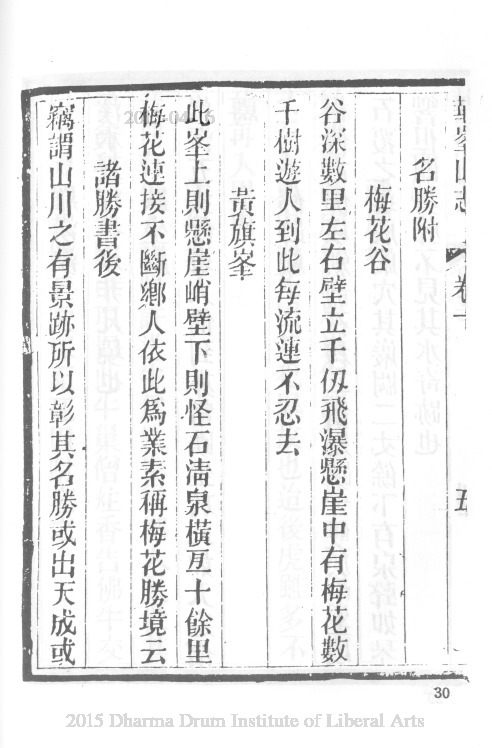 峯山志
卷十
五
名勝附
梅花谷
谷深數里左右壁立千仞飛瀑懸崖中有梅花數
千樹遊人到此每流連不忍去
黃旗峯
此峯上則懸崖峭壁下則怪石清泉橫亙十餘里
梅花連接不斷鄉人依此爲業素稱梅花勝境云
諸勝書後
竊謂山川之有景跡所以彰其名勝或出天成或
30
2015 Dharma Drum Institute of Liberal Arts